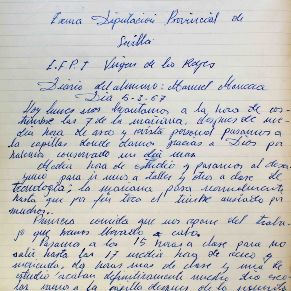 Excma Diputacion Provincial de
Sevilla
I.F.P.I Virgen de los Reyes
Diario del alumno: Manuel
Dia 6-3-67
Hoy lunes nos levantamos a la hora de cos-
tumbre las 7 de la mañana, despues de me-
dia hora de aseo y revista personal pasamos a
la capilla donde damos gracias a Dios por
habernos conservado un dia mas.
Media hora de estudio y pasamos al desa-
yuno para ir unos a taller y otros a clase de
tecnologia; la mañana pasa normalmente
hasta que por fin toca el timbre ansiado por
muchos.
comida que nos repone del traba-
jo que hemos llevado a cabo.
Pasamos a las 15 horas a clase para no
salir hasta las 17 media hora de recreo y
merienda, dos horas mas de clase y una de
estudio acaban definitivamente nuestro dia esco-
lar vamos a la capilla despues de la